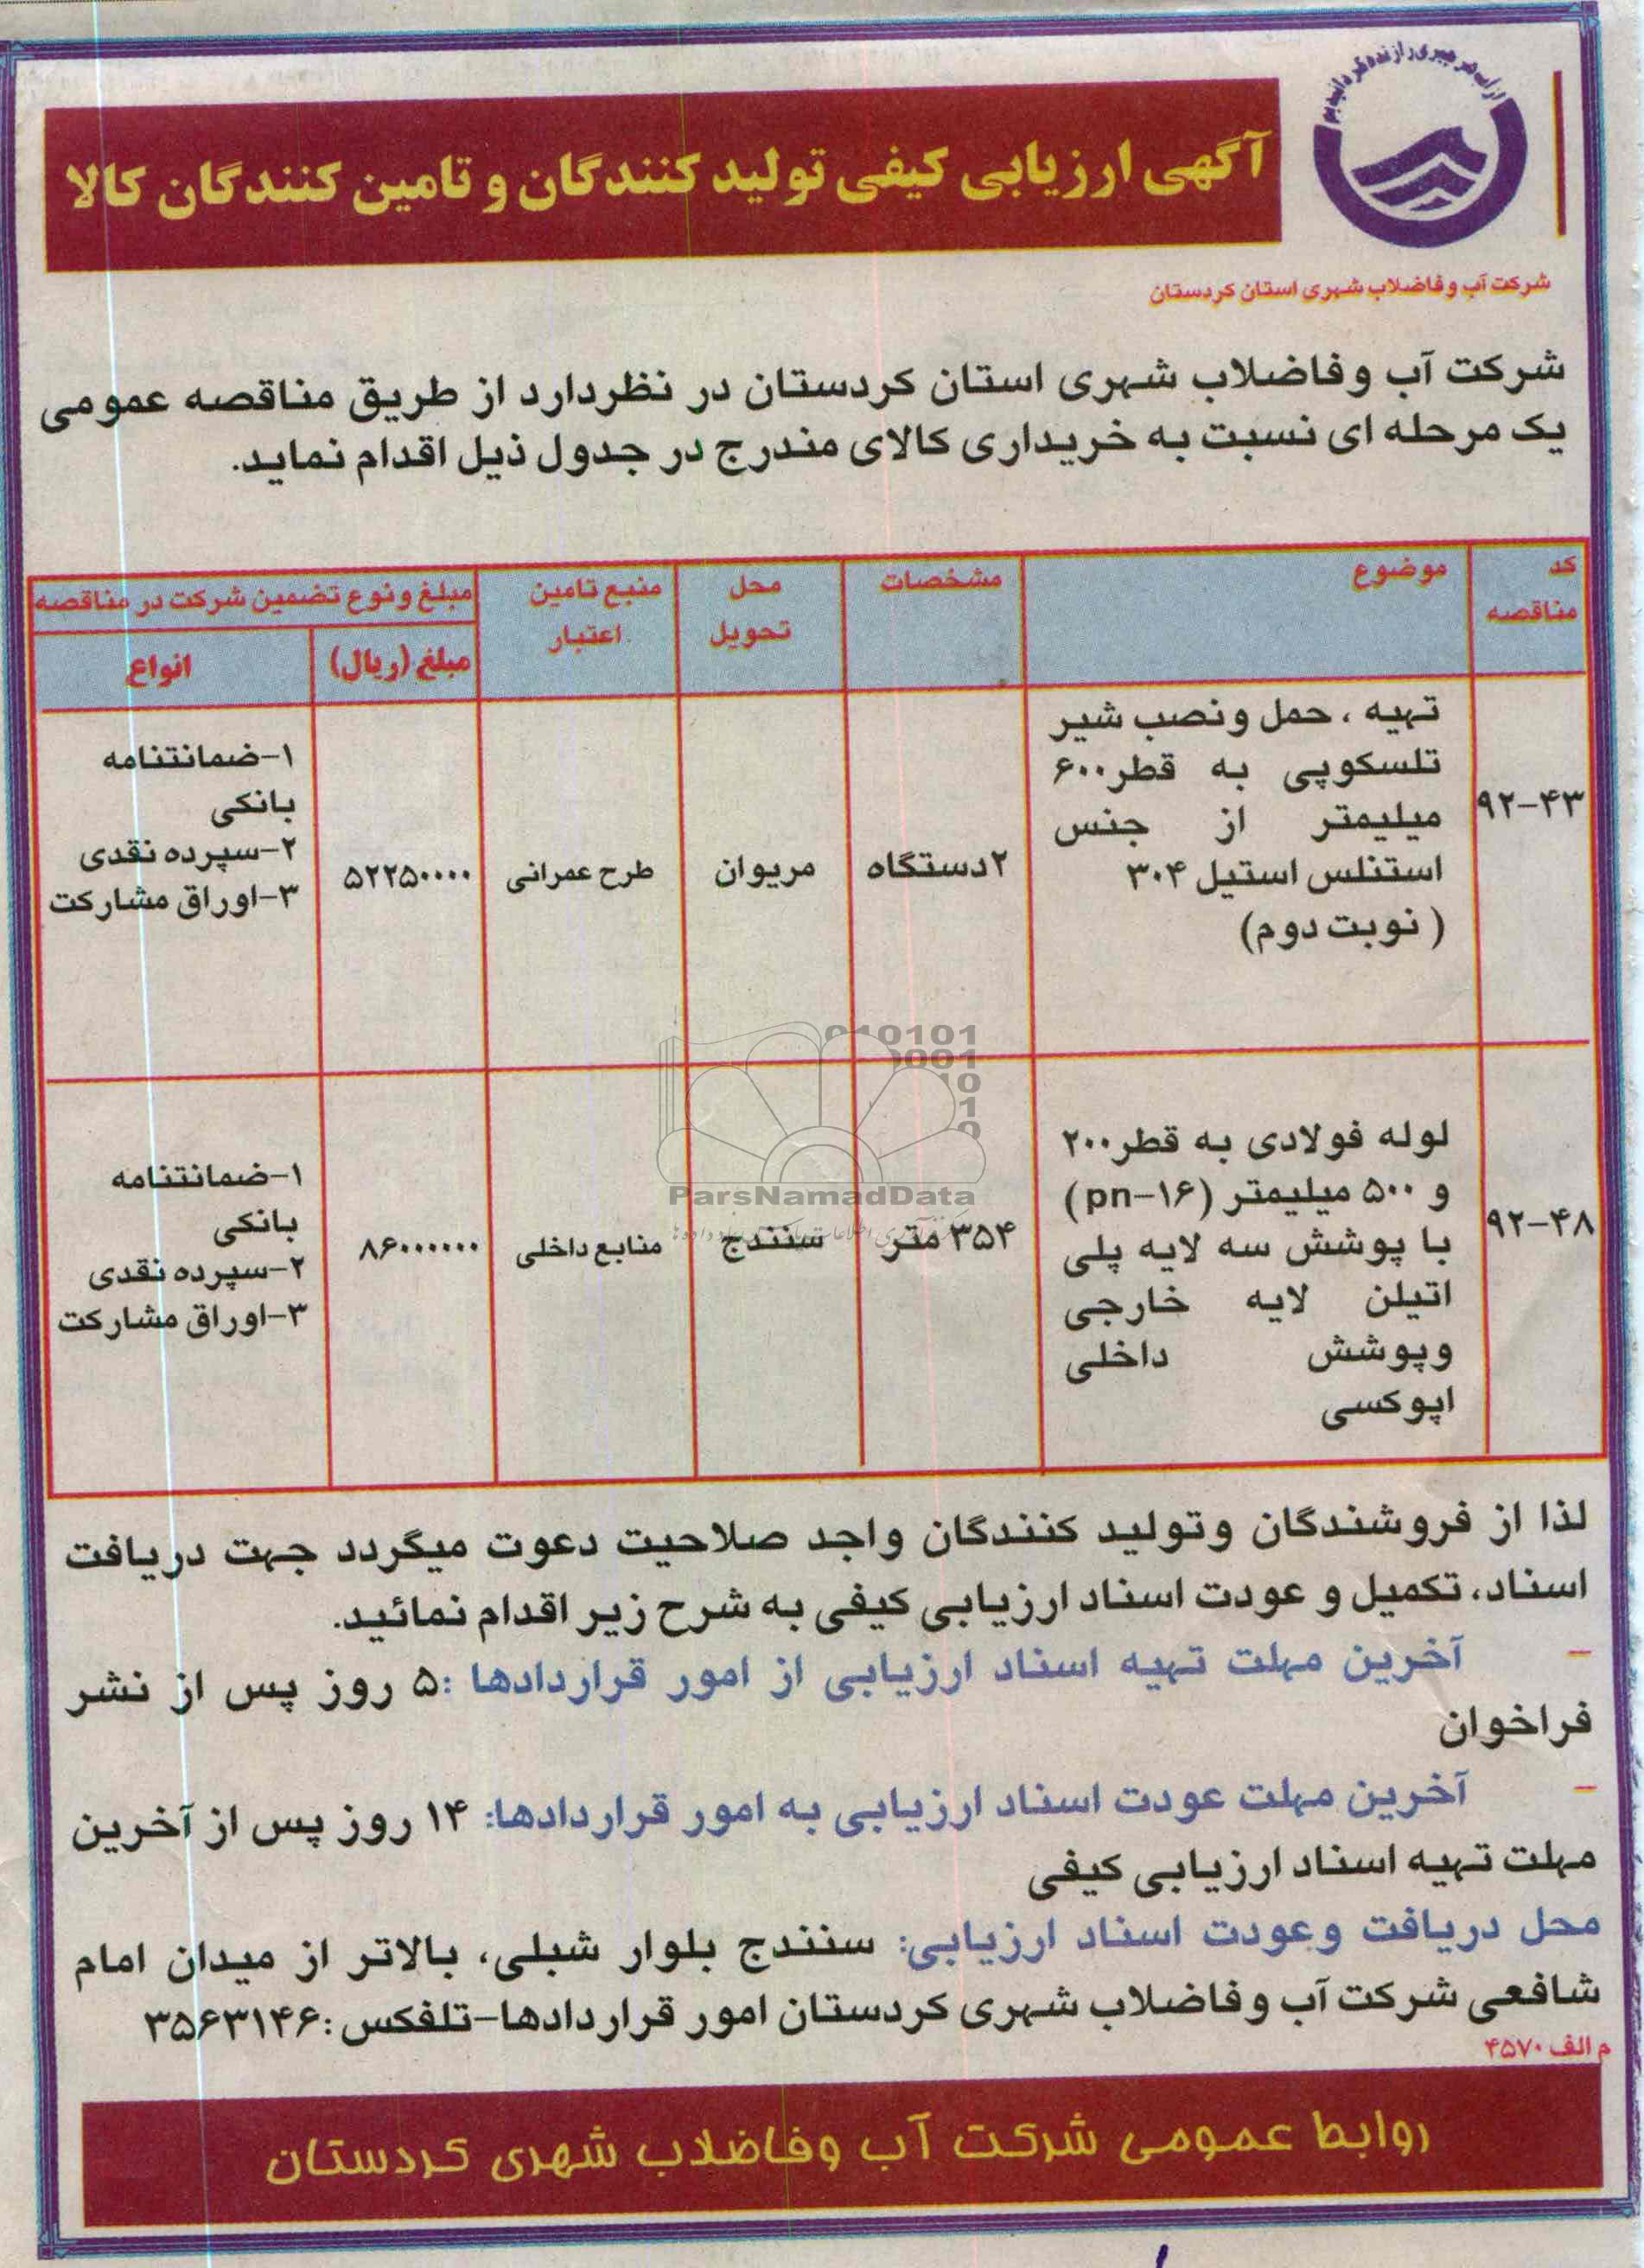 از آب هر چیزی را زنده گردانیدیم
آگهی ارزیابی کیفی تولید کنندگان و تامین کنندگان کالا
شرکت آب و فاضلاب شهری استان کردستان
شرکت آب و فاضلاب شهری استان کردستان در نظردارد از طریق مناقصه عمومی
یک مرحله ای نسبت به خریداری کالای مندرج در جدول ذیل اقدام نماید.
کد
مناقصه
موضوع
مشخصات
محل
تحویل
منبع تامین
اعتبار
مبلغ و نوع تضمین شرکت در مناقصه
مبلغ (ریال)
انواع
۹۲-۴۳
تهیه ، حمل و نصب شیر
تلسکوپی به قطر۶۰۰
میلیمتر از جنس
استنلس استیل ۳۰۴
( نوبت دوم)
۲دستگاه
مریوان
طرح عمرانی
۵۲۲۵۰۰۰۰
۱-ضمانتنامه
بانکی
۲-سپرده نقدی
۳-اوراق مشارکت
۹۲-۴۸
لوله فولادی به قطر۲۰۰
و ۵۰۰ میلیمتر (pn-۱۶)
با پوشش سه لایه پلی
اتیلن لایه خارجی
وپوشش داخلی
اپوکسی
۳۵۴ متر
سنندج
منابع داخلی
۸۶۰۰۰۰۰۰
۱-ضمانتنامه
بانکی
۲-سپرده نقدی
۳-اوراق مشارکت
ParsNamadData
لذا از فروشندگان وتولید کنندگان واجد صلاحیت دعوت میگردد جهت دریافت
اسناد، تکمیل و عودت اسناد ارزیابی کیفی به شرح زیر اقدام نمائید.
- آخرین مهلت تهیه اسناد ارزیابی از امور قراردادها :۵ روز پس از نشر
فراخوان
- آخرین مهلت عودت اسناد ارزیابی به امور قراردادها: ۱۴ روز پس از آخرین
مهلت تهیه اسناد ارزیابی کیفی
محل دریافت وعودت اسناد ارزیابی: سنندج بلوار شبلی، بالاتر از میدان امام
شافعی شرکت آب و فاضلاب شهری کردستان امور قراردادها-تلفکس :۳۵۶۳۱۴۶
م الف ۴۵۷۰
روابط عمومی شرکت آب وفاضلاب شهری کردستان